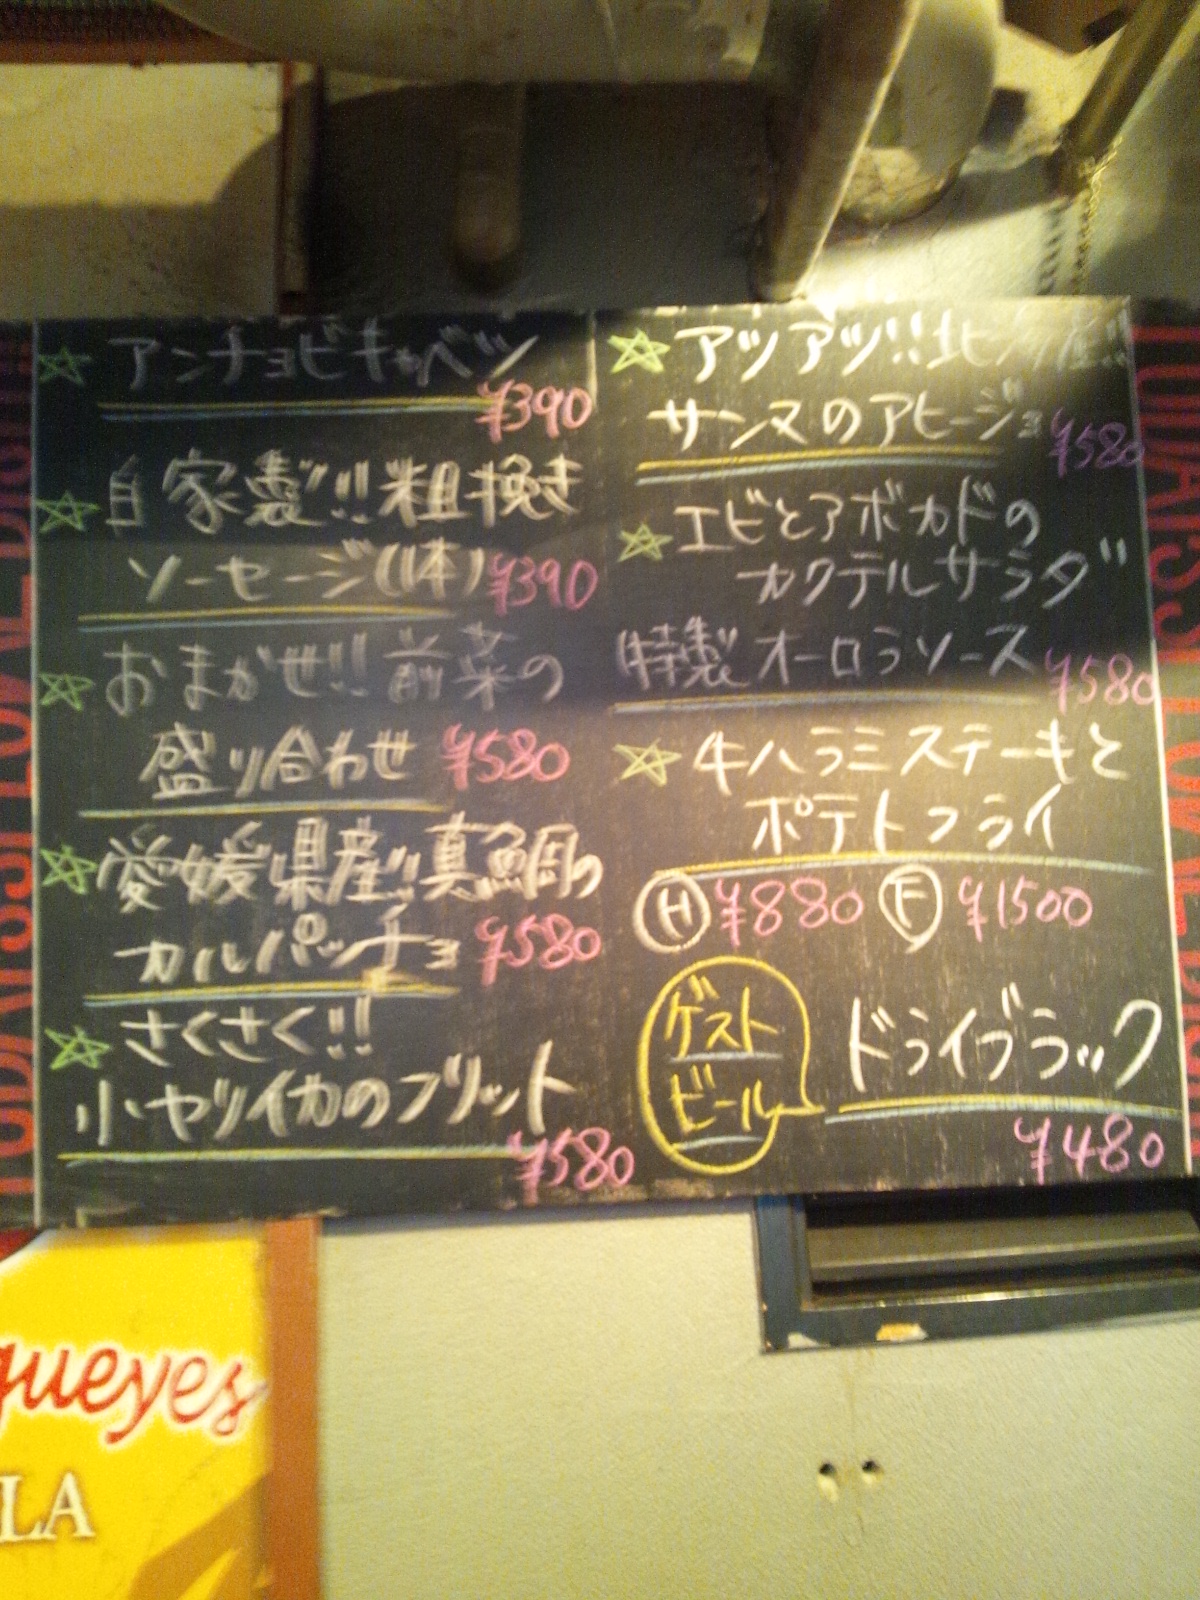 アンチョビキャベツ
¥390
自家製!!粗挽き
ソーセージ(1本) ¥390
おまかせ!!前菜の
盛り合わせ ¥580
愛媛県産!!真鯛の
カルパッチョ ¥580
さくさく!!
小ヤリイカのフリット
¥580
アツアツ!!北海道産!!
サンマのアヒージョ ¥580
エビとアボカドの
カクテルサラダ
特製オーロラソース ¥580
牛ハラミステーキと
ポテトフライ
H ¥880 F ¥1500
ゲスト
ビール
ドライブラック
¥480
gueyes
LA